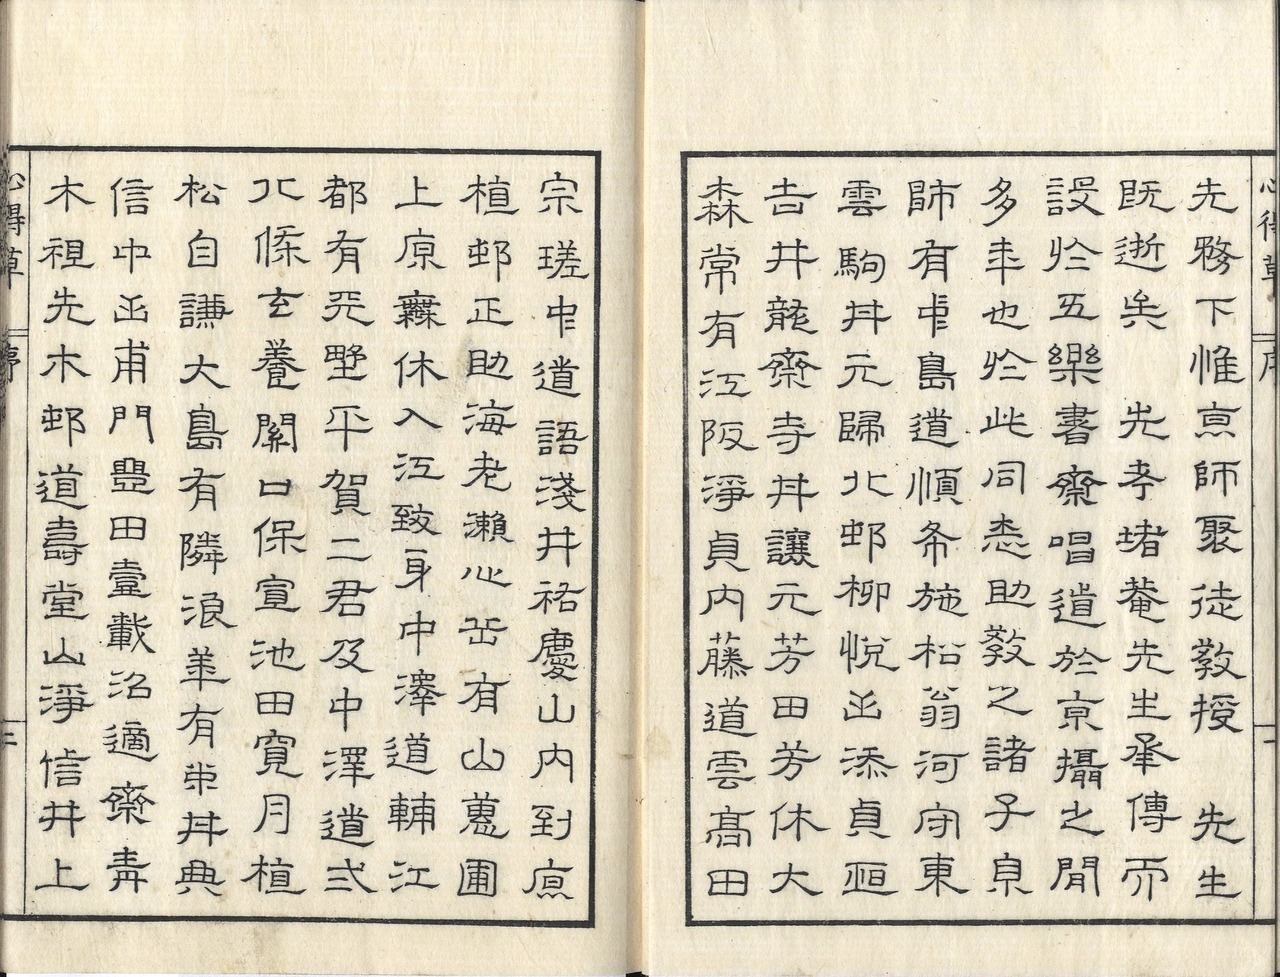 先務下惟京師聚徒敎授　先生
既逝矣　先考堵菴先生承傳而
設於五樂書齋唱道於京攝之間
多年也於此同志助敎之諸子京
師有中島道順布施松翁河守東
雲駒井元歸北邨柳悅西添貞恒
吉井龍齋寺井讓元芳田芳休大
森常有江阪淨貞內藤道雲高田
宗瑳中道語淺井祐慶山內到京
植邨正助海老瀨心岳有山蕙圃
上京無休入江致身中澤道輔江
都有平野平賀二君及中澤道弌
八條玄養關口保宣池田寬月植
松自謙大島有隣浪華有井典
信中正甫門豐田壹載沼適齋靑
木祖先木邨道壽堂山淨信井上
心得草
序
二